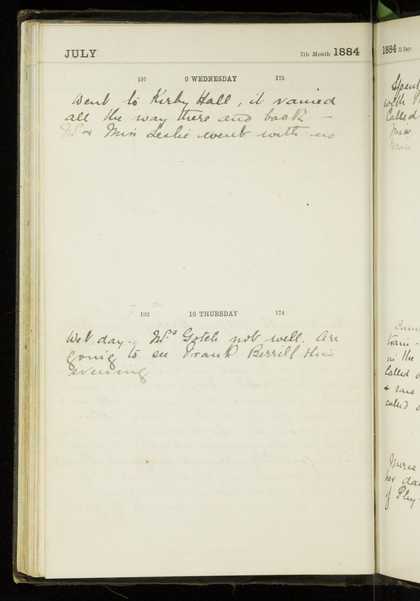 JULY 7th Month 1884
191 9 WEDNESDAY 175
Went to Kirby Hall, it rained
all the way there and back –
& Miss Leslie went with us
192 10 THURSDAY 174
Wet day. Mrs Gotch not well. Are
going to see Frank Perrill this
evening
1884
Spent
with
Called
train -
in the
Called
Nurse
her da
of Play